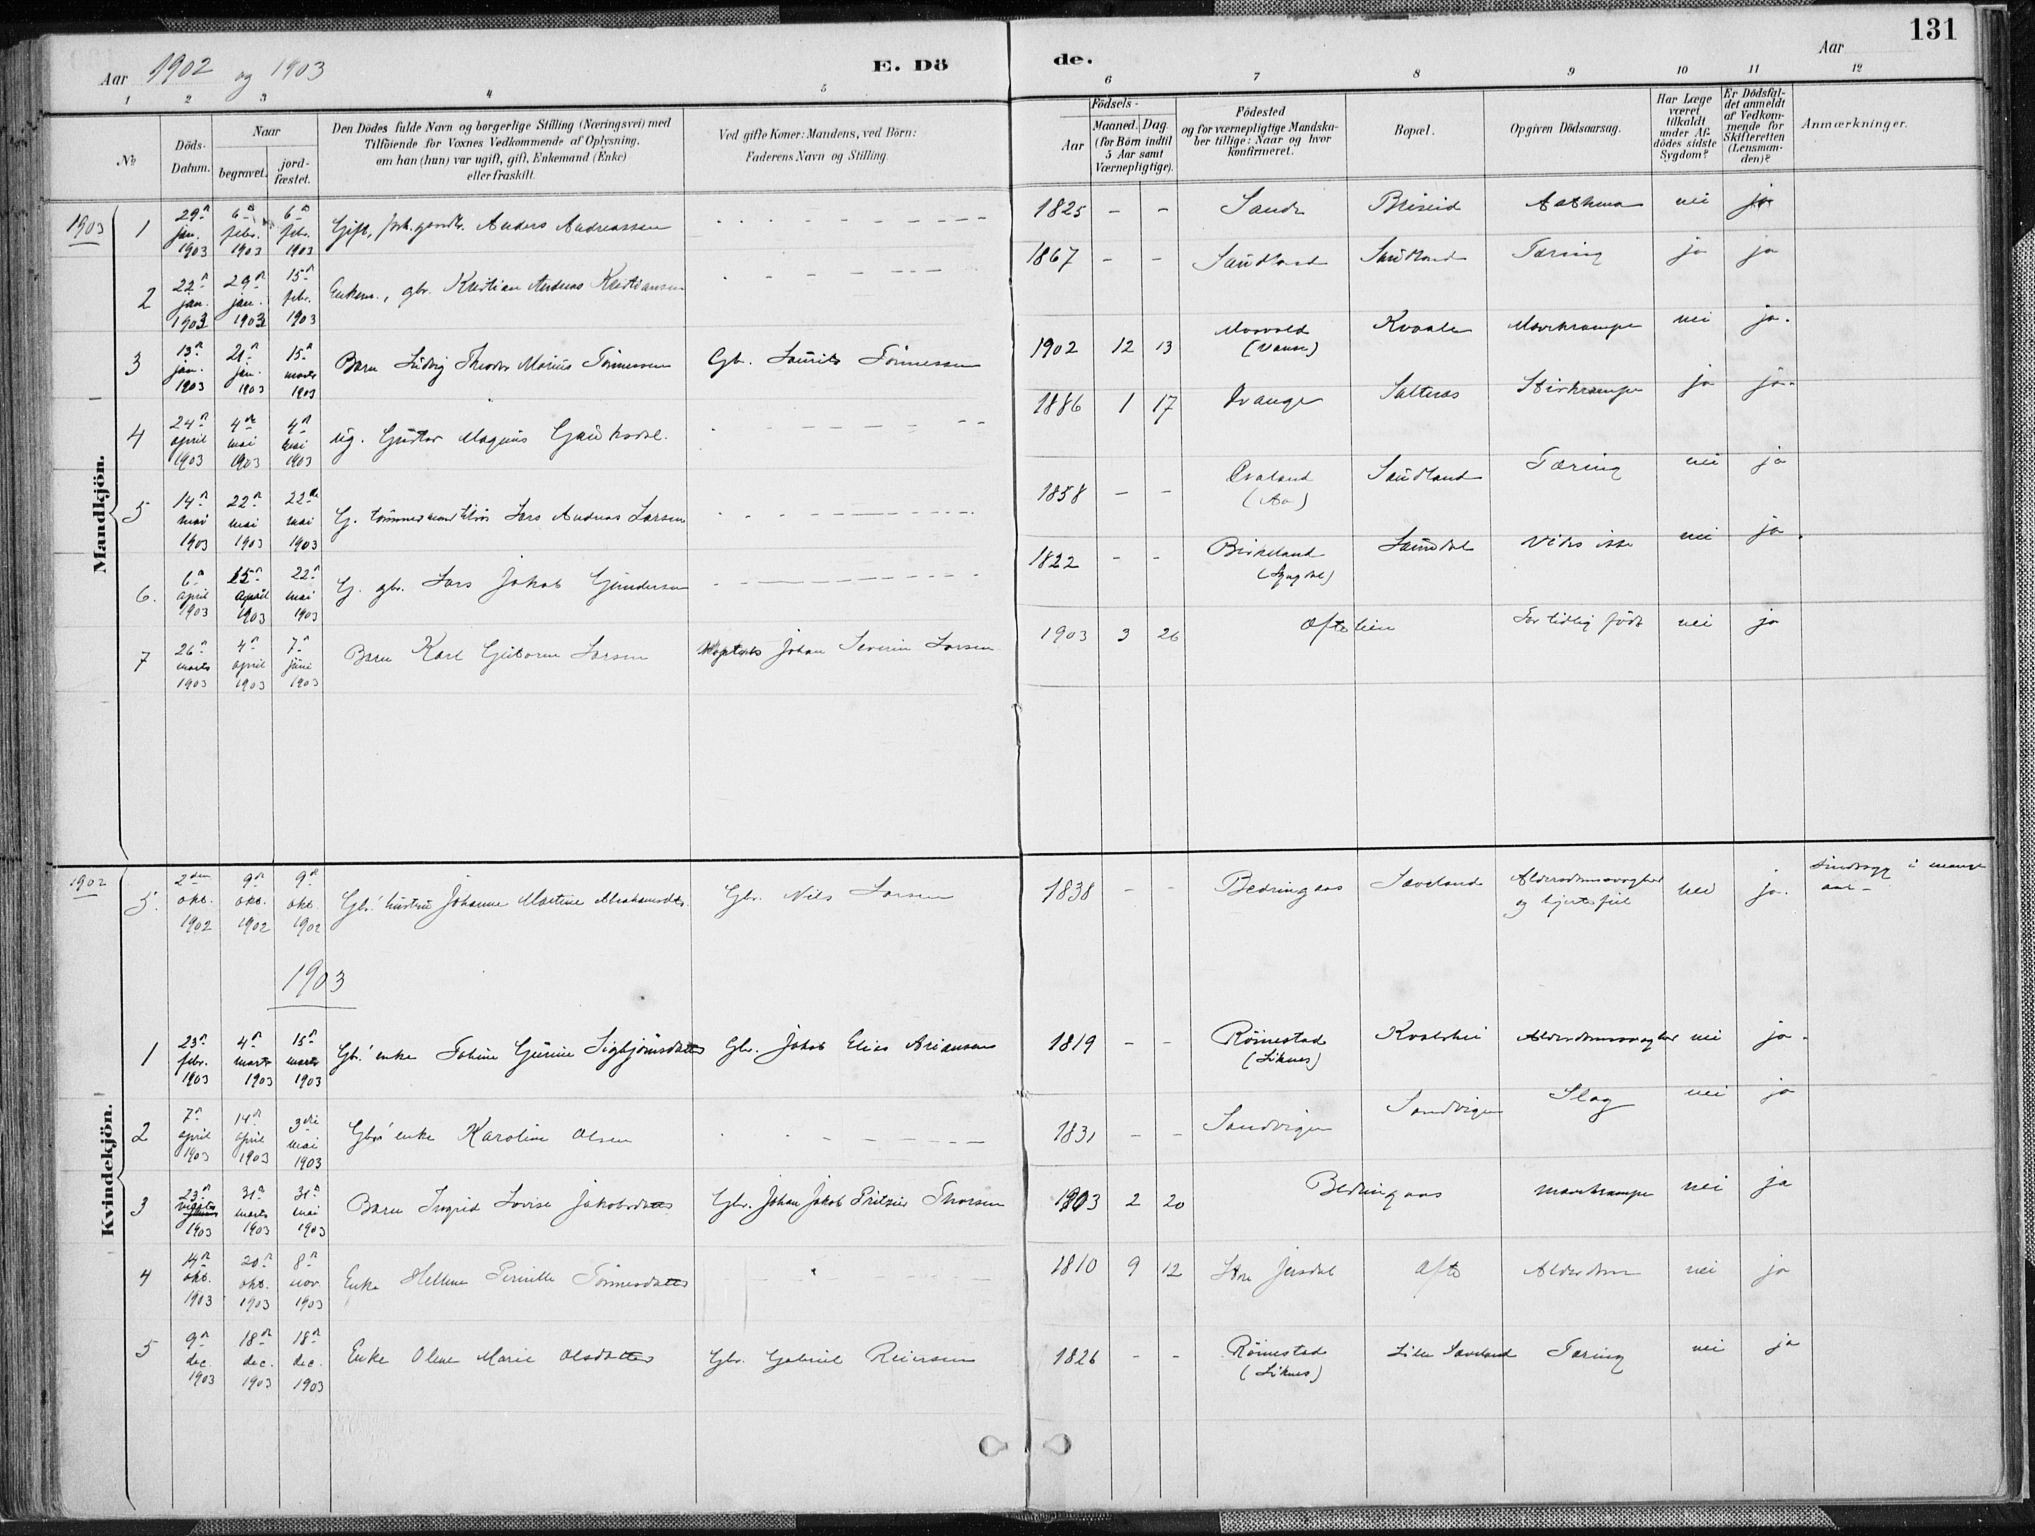 Aar 1902 og 1903
E. Dö
de.
Aar
131
1 2 3 4 5 6 7 8 9 10 11 12
№
Döds-Datum.
Naar
begravet.
jord-fæstet.
Den Dödes fulde Navn og borgerlige Stilling (Næringsvei) med
Tilföiende for Voxnes Vedkommende af Oplysning,
om han (hun) var ugift, gift, Enkemand (Enke)
eller fraskilt.
Ved gifte Koner: Mandens, ved Börn:
Faderens Navn og Stilling.
Födsels-
Aar
Maaned. Dag.
(for Börn indtil
5 Aar samt
Værnepligtige).
Födested
og for værnepligtige Mandska-
ber tillige: Naar og hvor
konfirmeret.
Bopæl.
Opgiven Dödsaarsag.
Har Læge
været
tilkaldt
under Af-
dödes sidste
Sygdom?
Er Dödsfal-
det anmeldt
af Vedkom-
mende for
Skifteretten
(Lensman-
den)?
Anmærkninger.
Mandkjön.
1903
1 29n jan. 1903 6n febr. 1903 6n febr. 1903 Gift, Anders Andreassen 1825 - - Sande Briseid Asthma nei ja
2 22n jan. 1903 29n jan. 1903 15n febr. 1903 Enkem., gbr. Kristian Andreas Kristiansen 1867 - - Saudland Saudland Tæring ja ja
3 13n jan. 1903 21n jan. 1903 15n marts 1903 Barn Ludvig Theodor Marius Tönnessen Gb. Laurits Tönnessen 1902 12 13 (Vanse) Kvaale Mavekrampe nei ja.
4 24n april 1903 4de mai 1903 4n mai 1903 ug. Gustav Magnus Gauksdal. 1886 1 17 Dvange Salteraas Stivkrampe ja ja.
5 14n mai 1903 22n mai 1903 22de mai 1903 G. Lars Andreas Larsen 1858 - - Saudland Tæring nei ja
6. 6n april 1903 15n april 1903 22n mai 1903 G. gbr. Lars Jakob Gundersen 1822 - - Birkeland (Lyngdal) nei ja.
7 26n marts 1903 4n april 1903 7n juni 1903 Barn Karl Gutorm Larsen Johan Severin Larsen 1903 3 26 Ofte For tidlig födt nei ja
Kvindekjön.
1902
5. 2den okt. 1902 9n okt. 1902 9n okt. 1902 Gbr.' hustru Johanne Martine Abrahamsdtr. Gbr. Niels Larsen 1838 - - Bedringaas Sæveland Alderdomssvaghed og hjertefeil nei ja. Sindssyg i mange aar-
1903
1 23n febr. 1903 4n marts 1903 15n marts 1903 Gb.' enke Tobine Gurine Sigbjörnsdatter Gbr. Jakob Elias Ariansen 1819 - - Römestad (Liknes) Kvalshei Alderdomssvaghed nei ja.
2 7n april 1903 14n april 1903 3die mai 1903 Gbrs' enke Karoline Olsen 1831 - - Sandvigen Sandvigen Slag nei ja
3 23n 1903 31n marts 1903 31n mai 1903 Barn Ingrid Lovise Jakobsdatter Gbr. Johan Jakob Thorsen 1903 2 20 Bedringaas Mavekrampe nei ja
4 14n okt. 1903 20n okt. 1903 8n nov. 1903 Enke Hellene Pernille Tönnesdatter 1810 9 12 Jersdal Ofte Alderdom nei ja
5 9n dec. 1903 18n dec. 1903 18n dec. 1903 Enke Olene Marie Olsdatter Gbr. Gabriel Reiersen 1826 - - Römestad (Liknes) Lille Sæveland Tæring nei ja